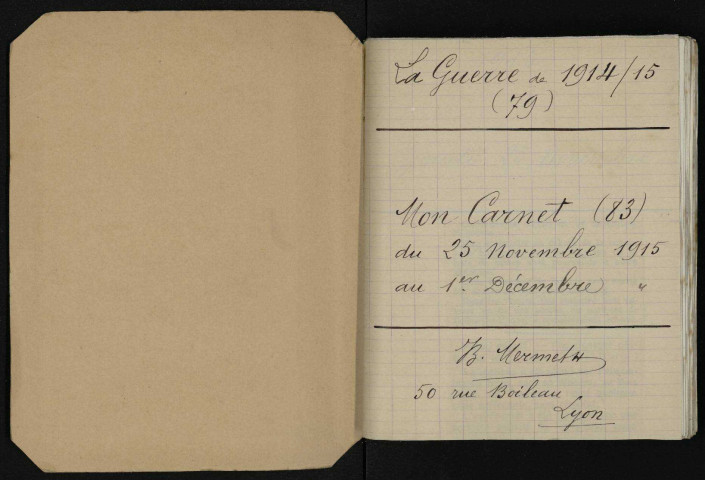 La Guerre de 1914/15
(79)
Mon Carnet (83)
du 25 Novembre 1915
au 1er Décembre "
B. Mermet
50 rue Boileau
Lyon